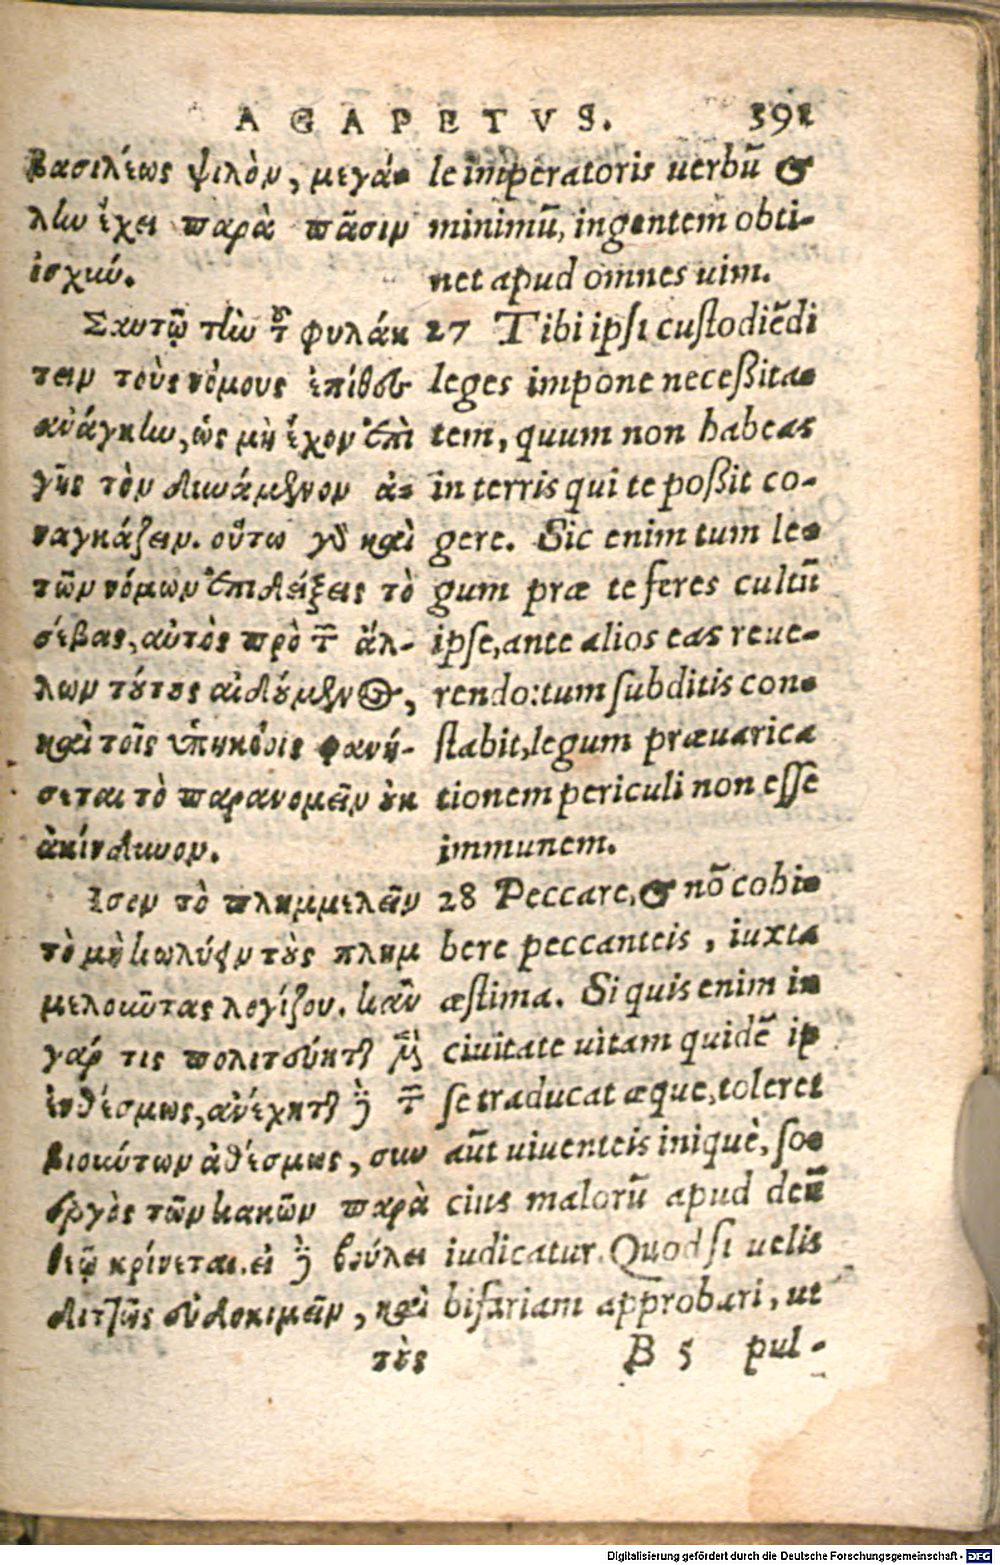 AGAPETVS. 391
βασιλέως ψιλὸν, μεγά-
λίω ἔχει παρὰ πᾶσιν
ἰσχιώ.
Σαυτῷ τίω τ̃ φυλάτ
τειν τοὺς νόμους ἐπίθες
ἀνάγκίω, ὡς μὴ ἔχον ἐπὶ
γῆς τὸν διωάμενον ἀ-
ναγκάζειν. οὕτω γὸ καὶ
τῶν νόμων ἐπιδείξεις τὸ
σέβας, αὐτὸς πρὸ τ̃ ἄλ-
λων τούτους αἰδούμενος,
καὶ τοῖς ὑπηκόοις φανή-
σεται τὸ παρανομεῖν οὐκ
ἀκίνδιωον.
Ισον τὸ πλημμελεῖν
τὸ μὴ κωλύειν τοὺς πλημ
μελοιῶτας λογίζου. κἂν
γάρ τις πολιτεύηται μὲν
ἐνθέσμως, ἀνέχηται δὲ τ̃
βιοιώτων ἀθέσμως, συν
εργὸς τῶν κακῶν παρὰ
θεῷ κρίνεται. εἰ δὲ βούλει
διττῶς εὐδοκιμεῖν, καὶ
τοὺς
le imperatoris uerbũ &
minimũ, ingentem obti-
net apud omnes uim.
27 Tibi ipsi custodiẽdi
leges impone neceßita-
tem, quum non habeas
in terris qui te poßit co-
gere. Sic enim tum le-
gum præ te feres cultũ
ipse, ante alios eas reue-
rendo: tum subditis con-
stabit, legum præuarica
tionem periculi non esse
immunem.
28 Peccare, & nõ cohi-
bere peccanteis, iuxta
æstima. Si quis enim in
ciuitate uitam quidẽ ip
se traducat æque, toleret
aũt uiuenteis iniquè, so-
cius malorũ apud deũ
iudicatur. Quod si uelis
bifariam approbari, ut
B 5 pul-
Digitalisierung gefördert durch die Deutsche Forschungsgemeinschaft - DFG